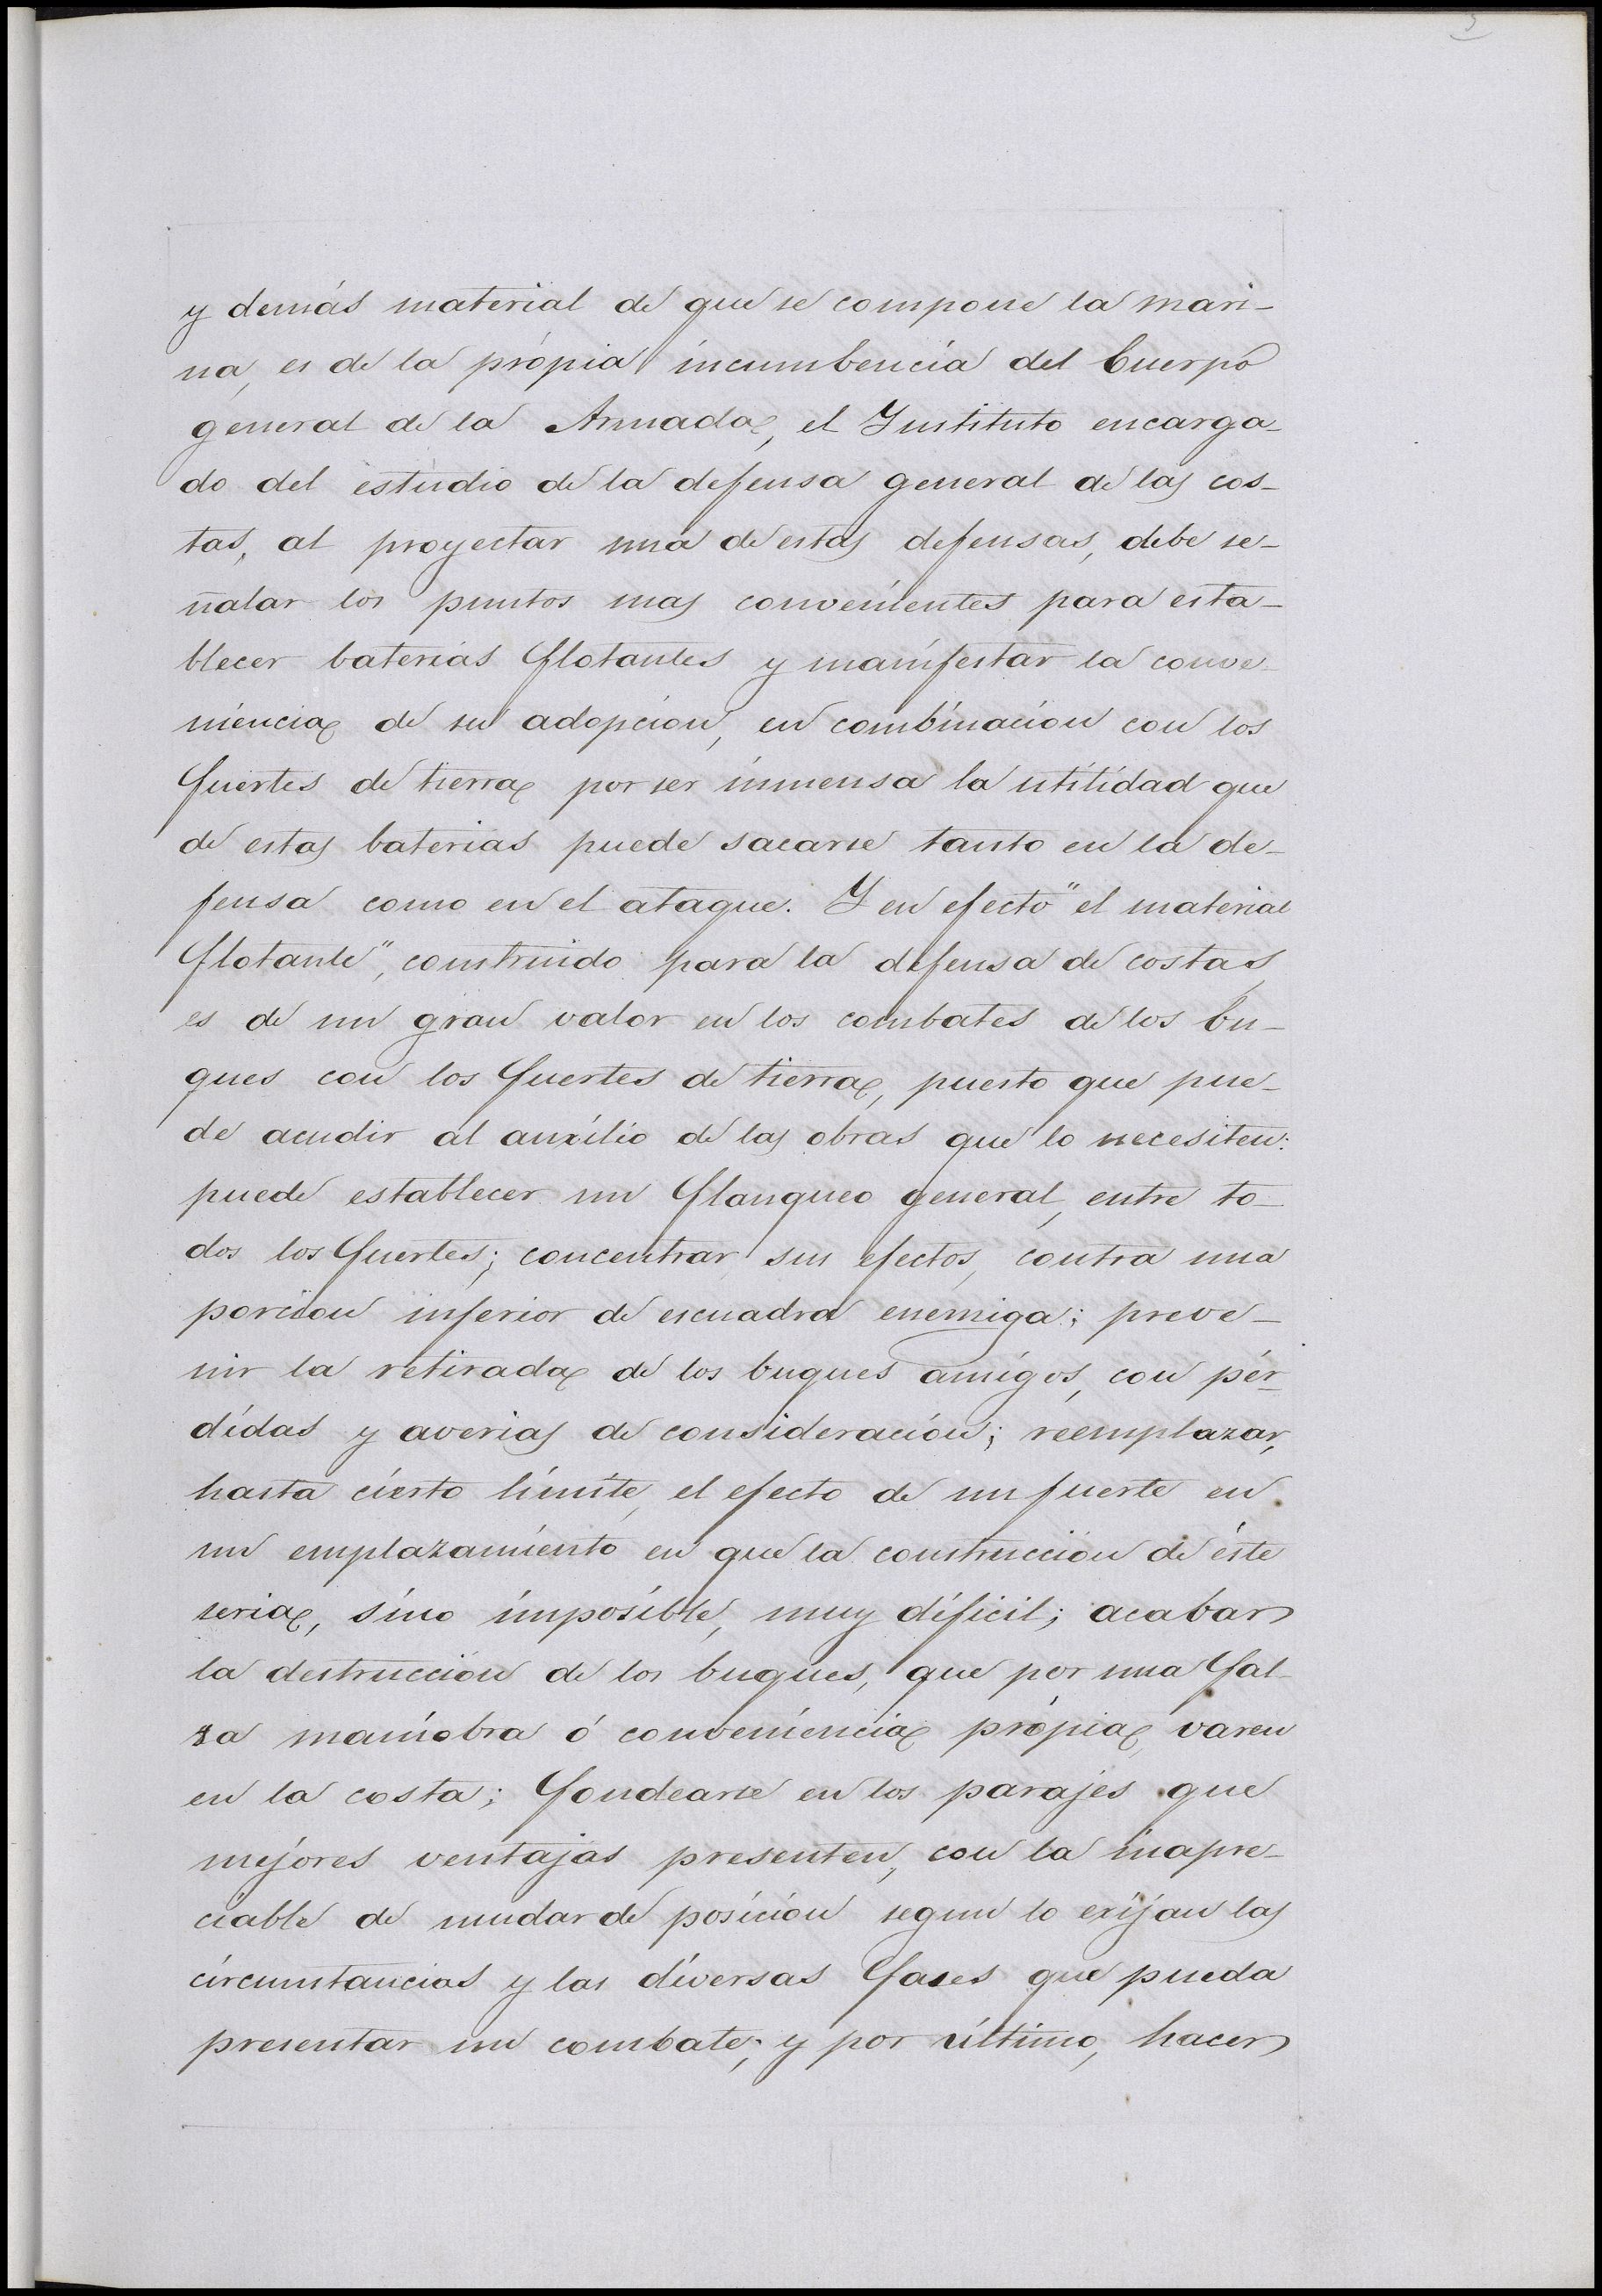 y demás material de que se compone la mari-
na, es de la própia incumbencia del Cuerpo
general de la Armada, el Ynstituto encarga-
do del estudio de la defensa general de las cos-
tas, al proyectar una de estas defensas, debe se-
ñalar los puntos mas convenientes para esta-
blecer baterias flotantes y manifestar la conve-
niencia de su adopcion, en combinacion con los
fuertes de tierra por ser inmensa la utilidad que
de estas baterias puede sacarse tanto en la de-
fensa como en el ataque. Y en efecto "el material
flotante", construido para la defensa de costas,
es de un gran valor en los combates de los bu-
ques con los fuertes de tierra, puesto que pue-
de acudir al auxilio de las obras que lo necesiten:
puede establecer un flanqueo general, entre to-
dos los fuertes; concentrar sus efectos, contra una
porcion inferior de escuadra enemiga; preve-
nir la retirada de los buques amigos, con pér-
didas y averias de consideración; reemplazar,
hasta cierto límite, el efecto de un fuerte en
un emplazamiento en que la construccion de éste
seria, sino imposible, muy dificil; acabar
la destruccion de los buques, que por una fal-
sa maniobra ó conveniencia própia, varen
en la costa; fondearse en los parajes que
mejores ventajas presenten, con la inapre-
ciable de mudar de posicion segun lo exijan las
circunstancias y las diversas fases que pueda
presentar un combate; y por último, hacer